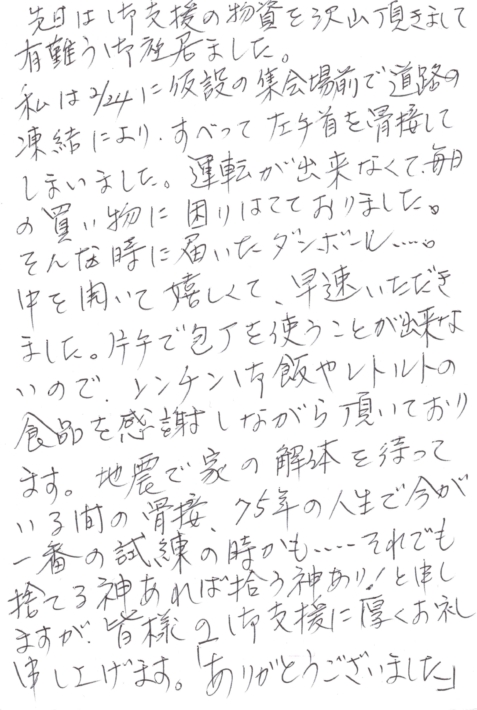 先日は御支援の物資を沢山頂きまして
有難う御座居ました。
私は2/24に仮設の集会場前で道路の
凍結により、すべって左手首を骨接して
しまいました。運転が出来なくて、毎日
の買い物に困りはてておりました。
そんな時に届いたダンボール……。
中を開いて嬉しくて、早速いただき
ました。片手で包丁を使うことが出来な
いので、レンチン御飯やレトルトの
食品を感謝しながら頂いており
ます。地震で家の解体を待って
いる間の骨接、75年の人生で今が
一番の試練の時かも……それでも
捨てる神あれば拾う神あり!と申し
ますが、皆様の御支援に厚くお礼
申し上げます。「ありがとうございました」